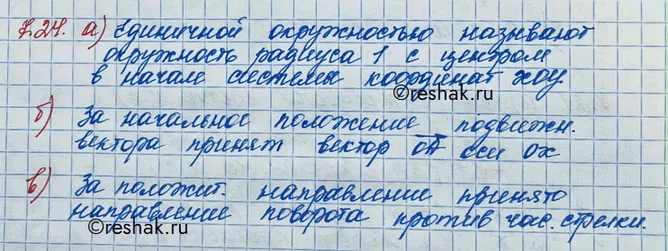 7.24. а) Единичной окружностью называют
окружность радиуса 1 с центром
в начале системы координат xoy
©reshak.ru
б) За начальное положение подвижн.
вектора принят вектор OA оси ox
в) За положит. направление принято
направление поворота против час. стрелки.
©reshak.ru